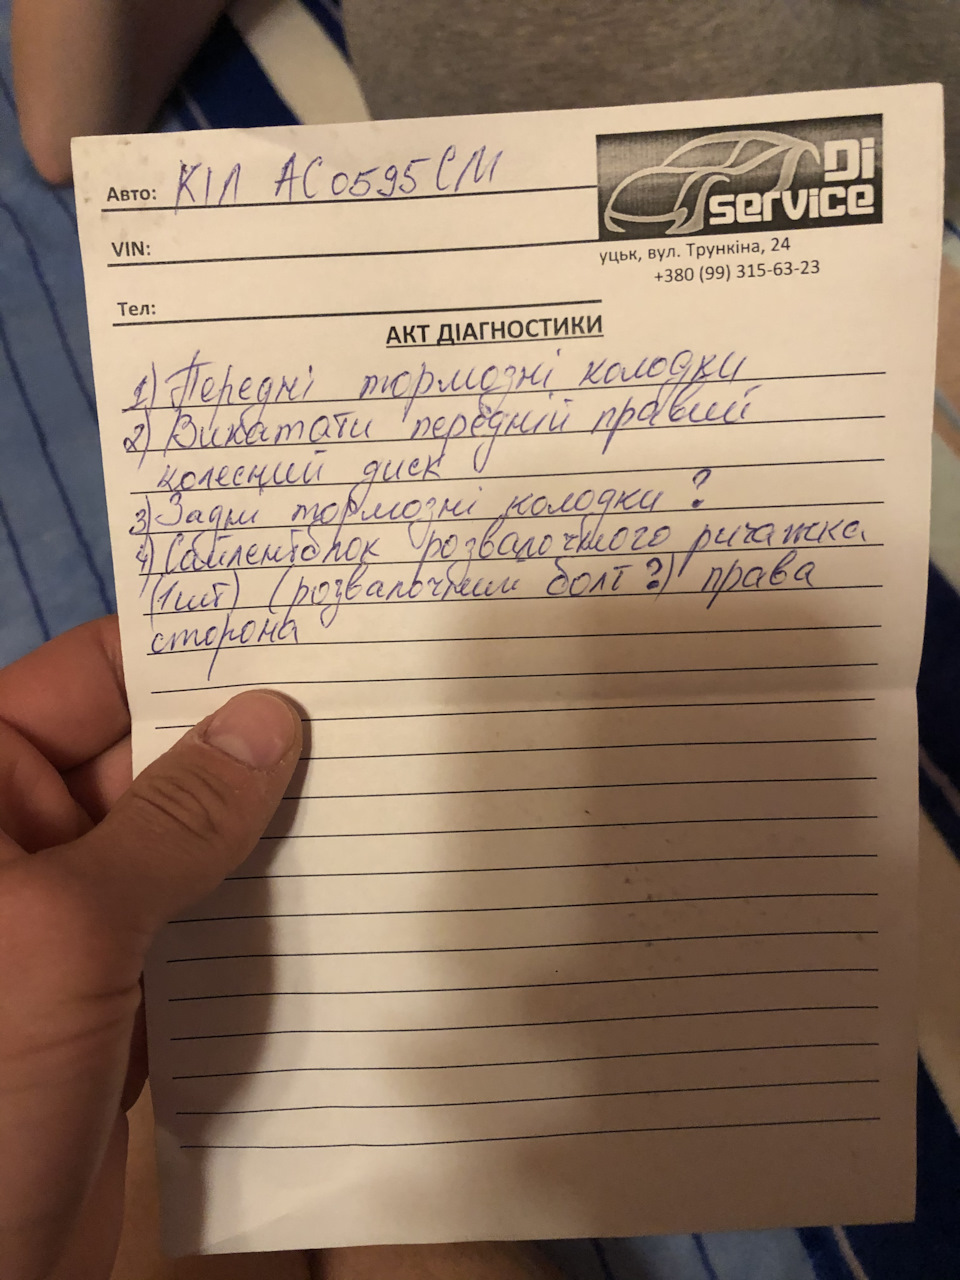 Авто: КІЛ АС0595СМ
Di
service
VIN:
уцьк, вул. Трункіна, 24
+380 (99) 315-63-23
Тел:
АКТ ДІАГНОСТИКИ
1) Передні тормозні колодки
2) Викатати передній правий
колесний диск
3) Задні тормозні колодки ?
4) Сайлентблок розвалочного ричажка
(1шт) (розвалочний болт ?) права
сторона